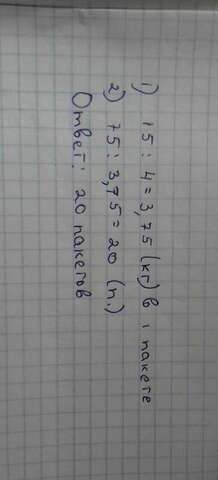 1) 15 : 4 = 3,75 (кг) в 1 пакете
2) 75 : 3,75 = 20 (п.)
Ответ: 20 пакетов